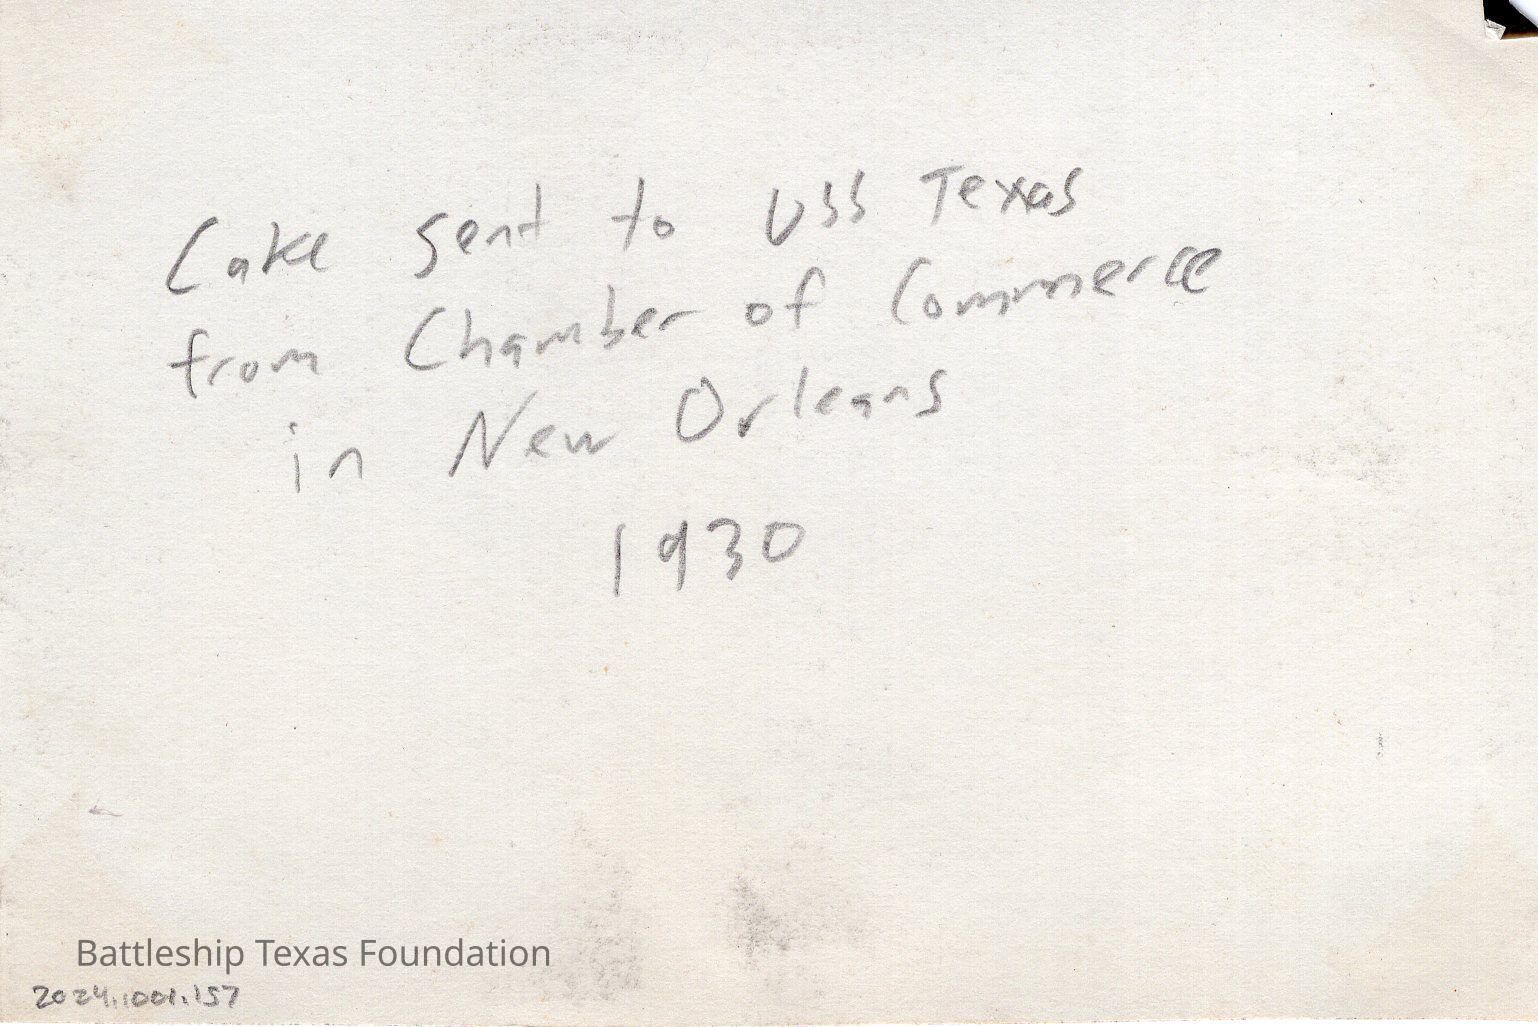 Cake sent to USS Texas
from Chamber of Commerce
in New Orleans
1930
Battleship Texas Foundation
2024.1001.157